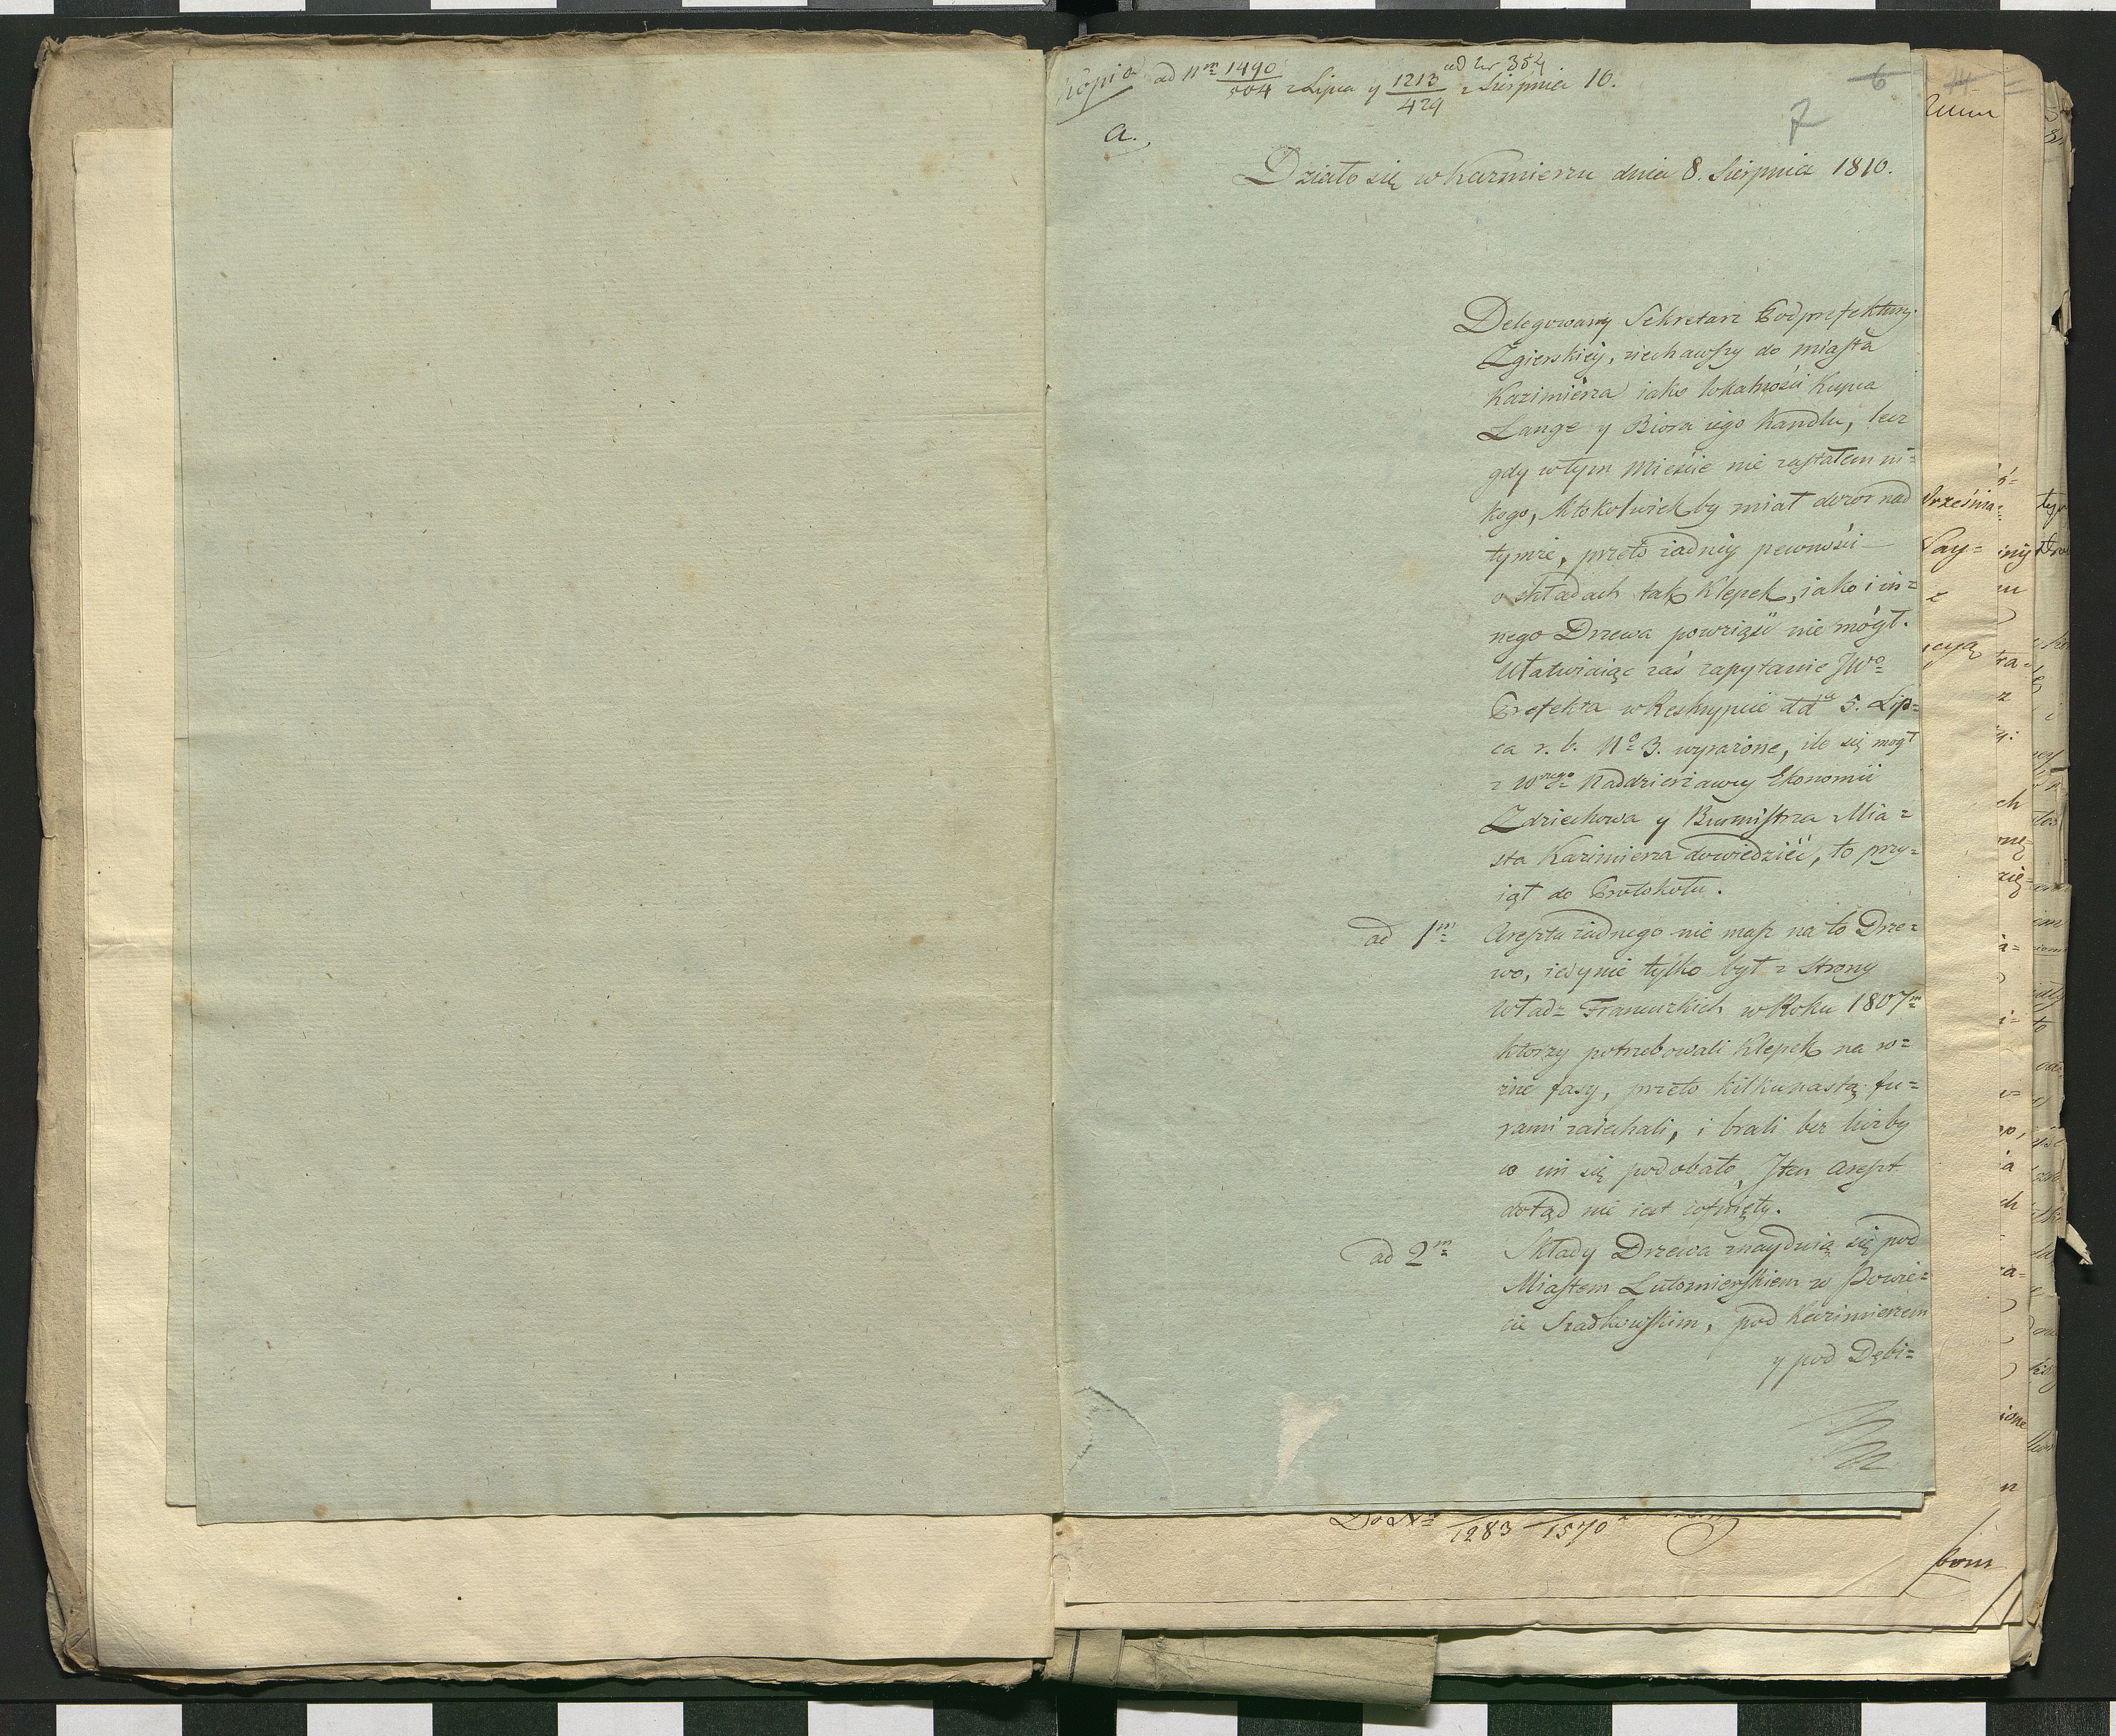 Kopia ad Nm 1490/504 z Lipca y 1213/429 z Sierpnia 10.
ad Nr 354
6
7
a.
Działo się w Kazmierzu dnia 8. Sierpnia 1810.
Delegowany Sekretarz Podprefektury
Zgierskiey, ziechawszy do miasta
Kazimierza iako lokalności Kupca
Lange y Biora iego Handlu, lecz
gdy w tym Mieście nie zastałem ni=
kogo, ktokolwiek by miał dozor nad
tymże, przeto żadney pewności
o składach tak Klepek, iako i in=
nego Drzewa powziąść nie mógł.
Ułatwiaiąc zaś zapytanie JWo
Prefekta w Reskrypcie dda 5. Lip=
ca r. b. No 3. wyrażone, ile się mogł
z Wnego Naddzierżawcy Ekonomii
Zdziechowa y Burmistrza Mia=
sta Kazimierza dowiedzieć, to przy=
iął do Protokołu.
ad 1m Aresztu żadnego nie masz na to Drze=
wo, iedynie tylko był z strony
Władz Francuzkich w Roku 1807m
ktorzy potrzebowali Klepek na ro=
żne fasy, przeto kilkunastą fu=
rami zaiechali, i brali bez liczby
co im się podobało, J ten areszt
dotąd nie iest cofnięty.
ad 2m Składy Drzewa znayduią się pod
Miastem Lutomierskiem w Powie=
cie Szadkowskim, pod Kazimierzem
y pod Dębi=
1283 1570